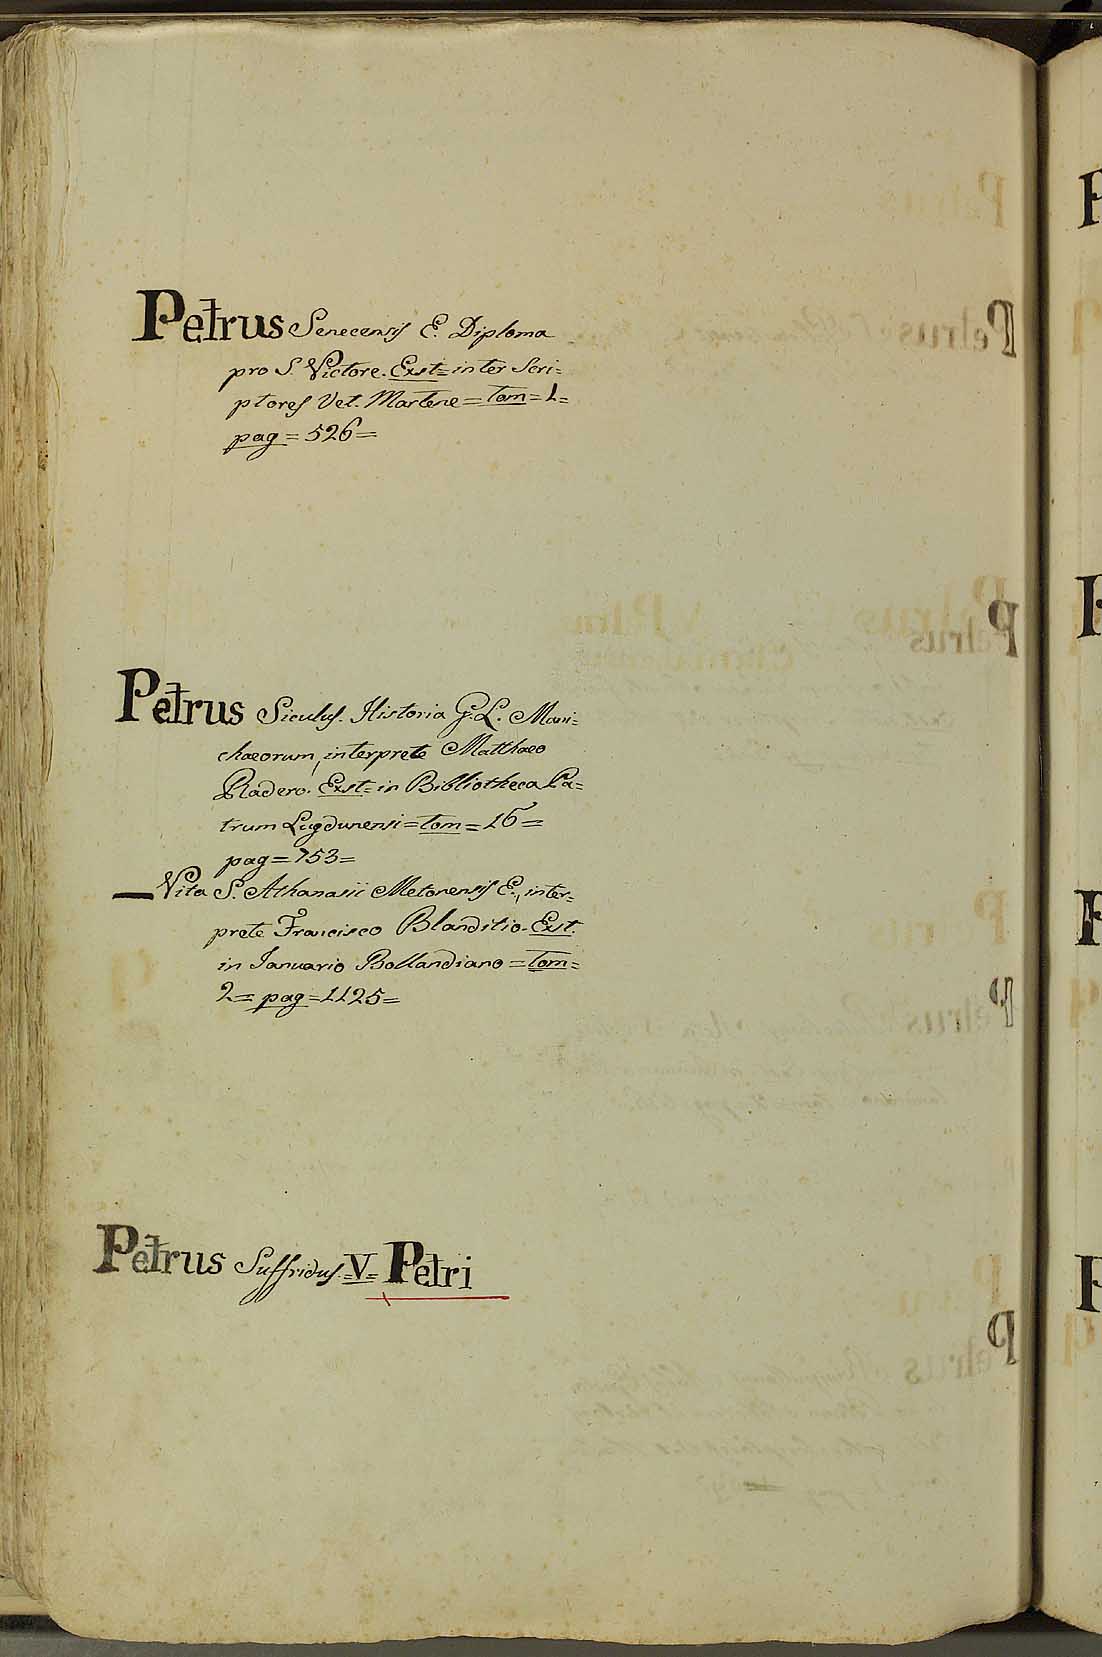 Petrus Senecensis E. Diploma
pro S. Victore. Exst= inter Scri=
ptores Vet. Martene= tom= 1=
pag= 526=
Petrus Siculus. Historia G. L. Mani=
chaeorum, interprete Matthaeo
Radero. Exst= in Bibliotheca Pa=
trum Lugdunensi= tom= 16=
pag= 753=
— Vita S. Athanasii Metonensis E., inter=
prete Francisco Blanditio. Exst.
in Ianuario Bollandiano= tom=
2= pag= 1125=
Petrus Suffridus. =V= Petri